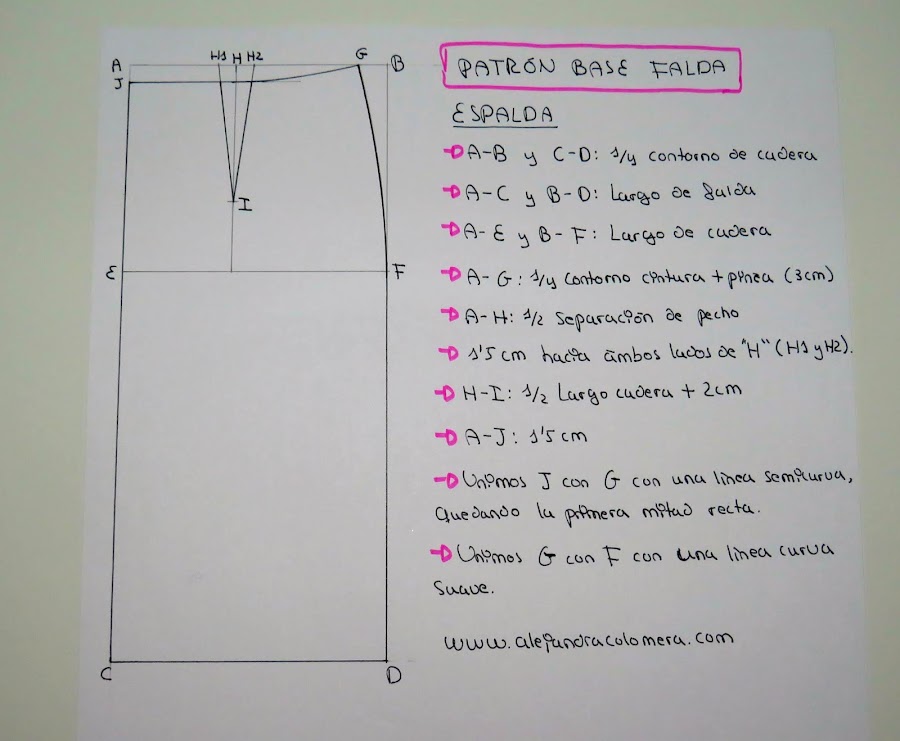 A H1 H H2 G B
J
I
E F
C D
PATRÓN BASE FALDA
ESPALDA
A-B y C-D: 1/4 contorno de cadera
A-C y B-D: Largo de falda
A-E y B-F: Largo de cadera
A-G: 1/4 contorno cintura + pinza (3cm)
A-H: 1/2 separación de pecho
1'5 cm hacia ambos lados de "H" (H1 y H2).
H-I: 1/2 Largo cadera + 2cm
A-J: 1'5 cm
Unimos J con G con una línea semicurva,
quedando la primera mitad recta.
Unimos G con F con una línea curva
suave.
www.alejandracolomera.com